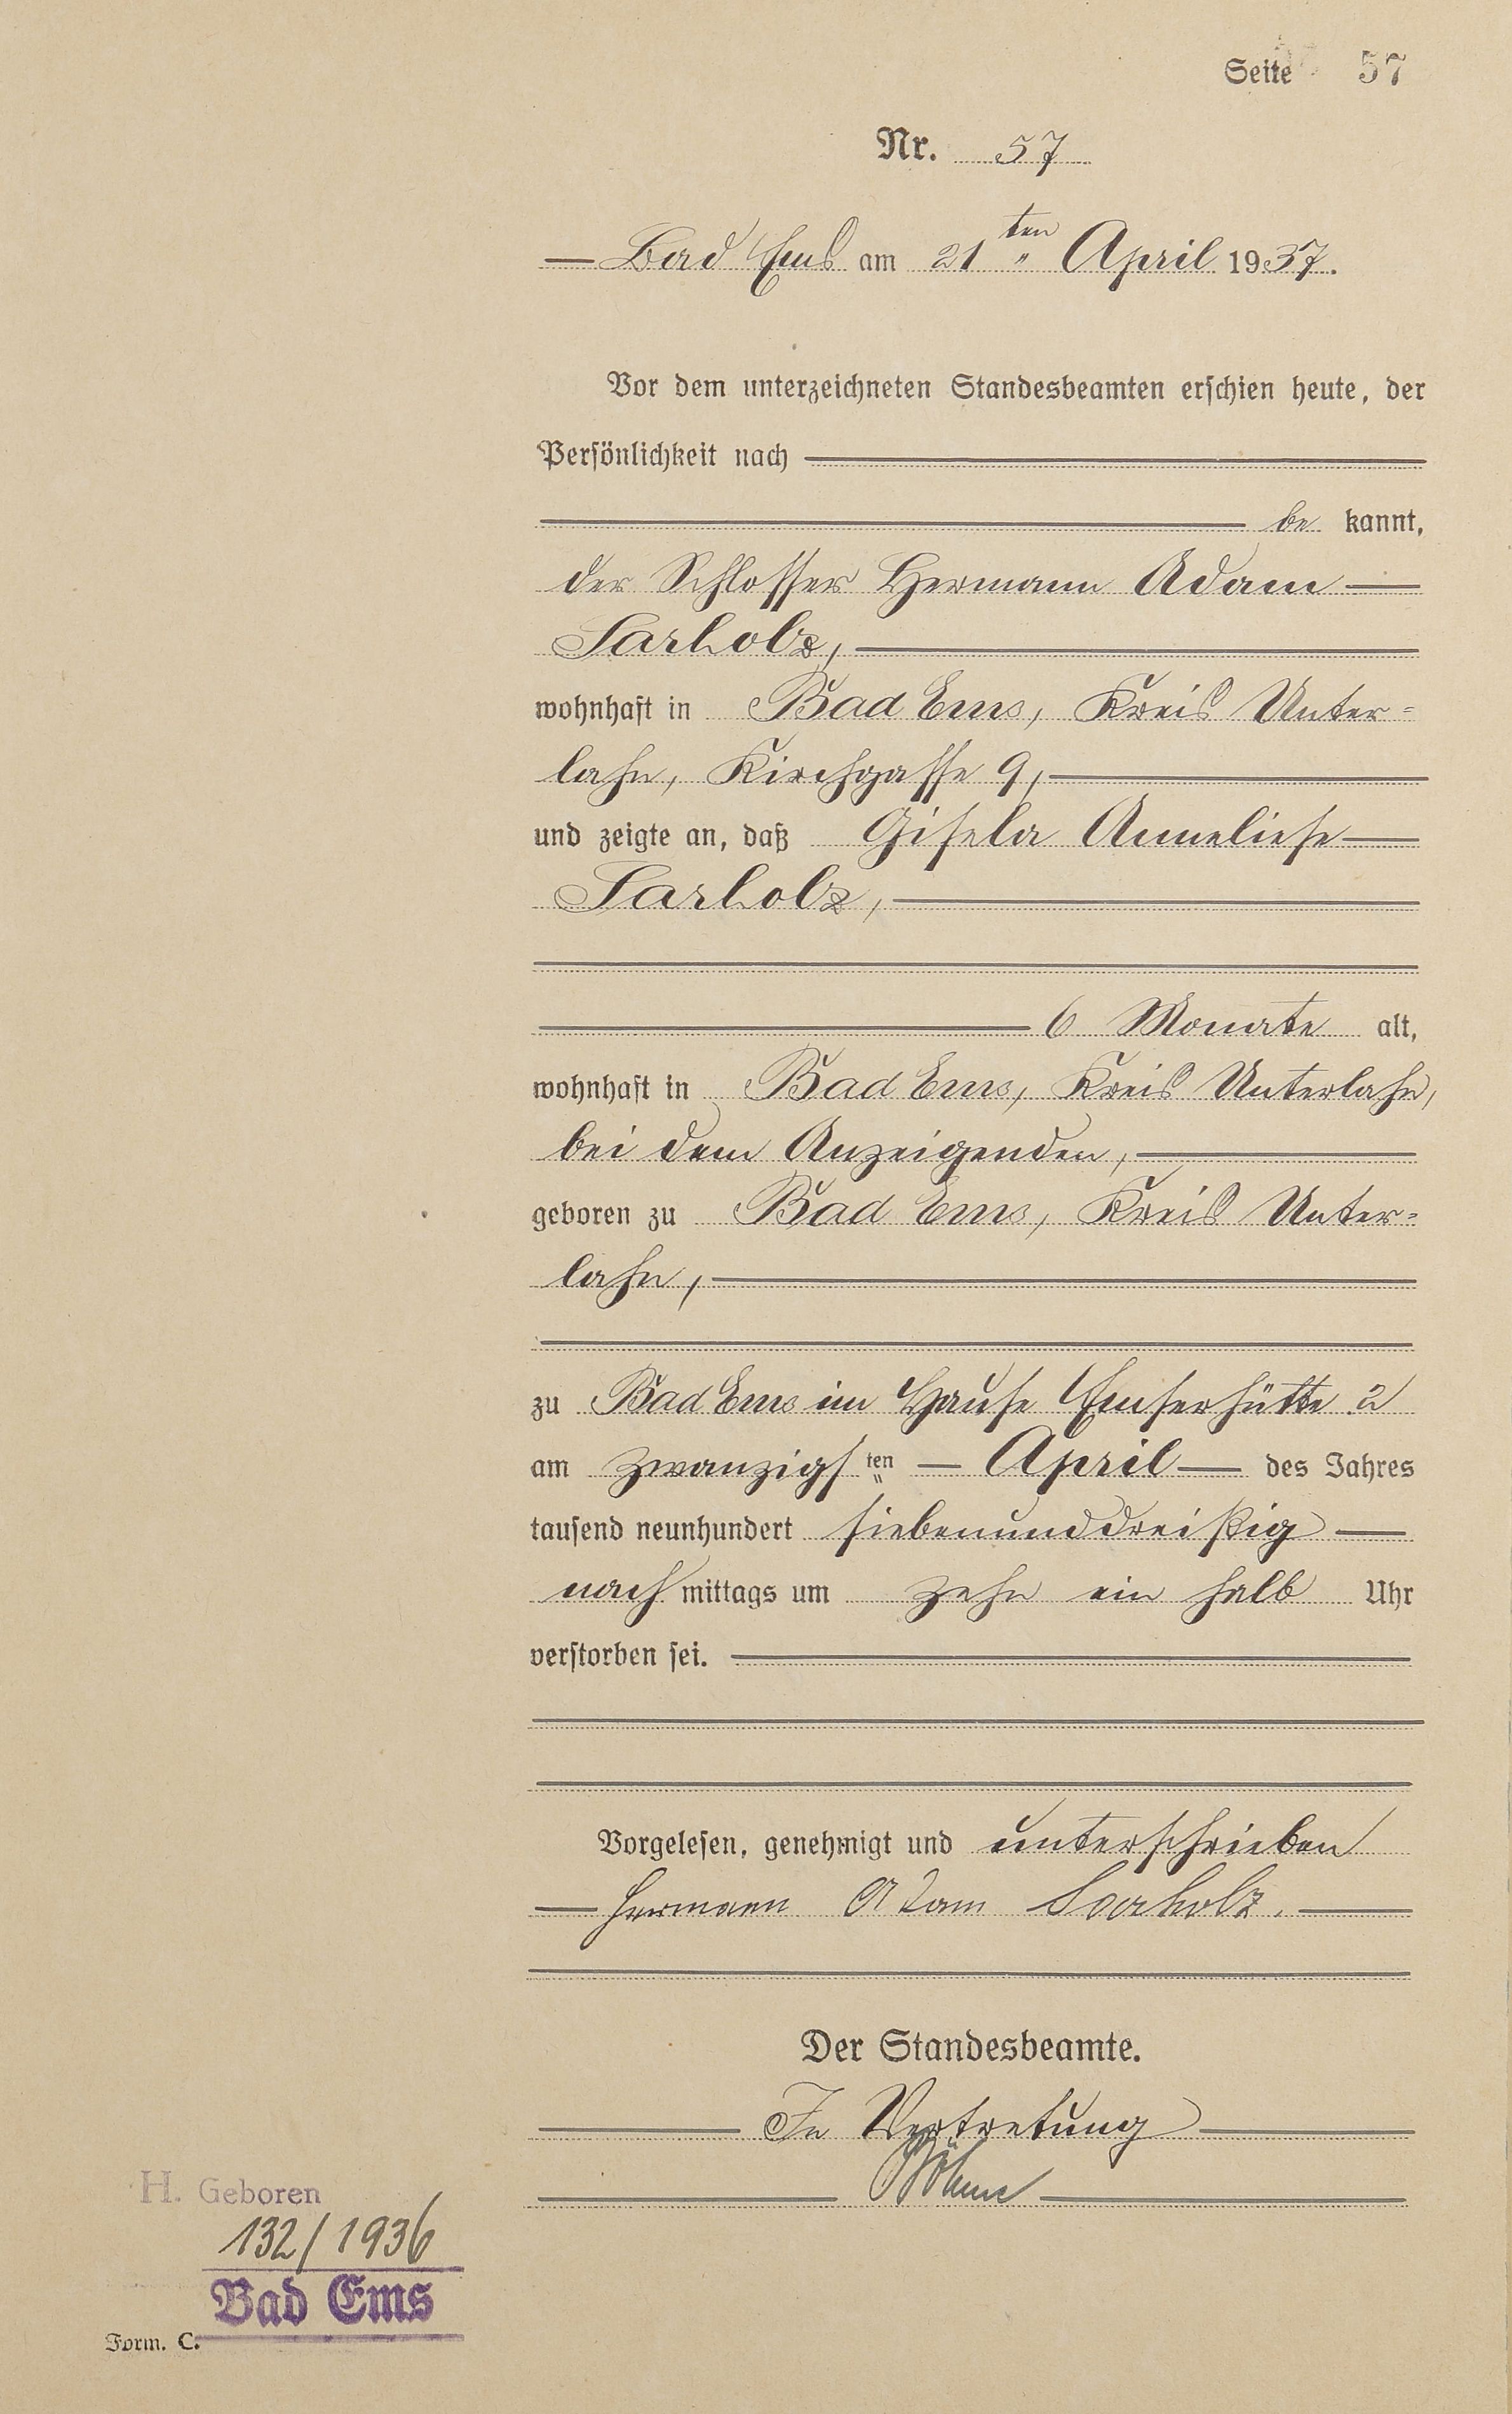 Seite 57
Nr. 57
Bad Ems am 21ten April 1937.
Vor dem unterzeichneten Standesbeamten erschien heute, der
Persönlichkeit nach
be kannt,
der Schlosser Hermann Adam
Sarholz,
wohnhaft in Bad Ems, Kreis Unter-
lahn, Kirchgasse 9,
und zeigte an, daß Gisela Anneliese
Sarholz,
6 Monate alt,
wohnhaft in Bad Ems, Kreis Unterlahn,
bei dem Anzeigenden,
geboren zu Bad Ems, Kreis Unter-
lahn,
zu Bad Ems im Hause Emserhütte 2
am zwanzigsten April des Jahres
tausend neunhundert siebenunddreißig
nachmittags um zehn ein halb Uhr
verstorben sei.
Vorgelesen, genehmigt und unterschrieben
Hermann Adam Sarholz.
Der Standesbeamte.
In Vertretung
Böhme
H. Geboren
132/1936
Bad Ems
Form. C.